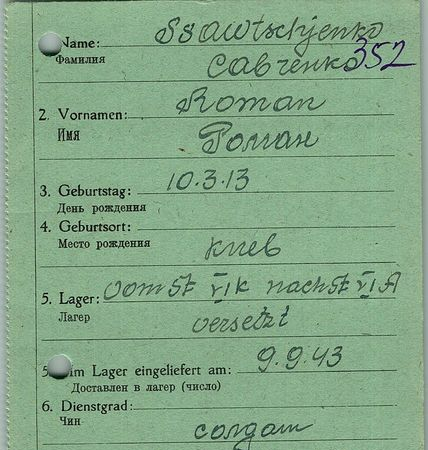 Name: Ssawtschjenko
Фамилия Савченко 352
2. Vornamen: Roman
Имя Роман
3. Geburtstag: 10.3.13
День рождения
4. Geburtsort:
Место рождения Киев
5. Lager: vom St VI K nach St VI A
Лагер versetzt
5 Im Lager eingeliefert am: 9.9.43
Доставлен в лагер (число)
6. Dienstgrad:
Чин солдат